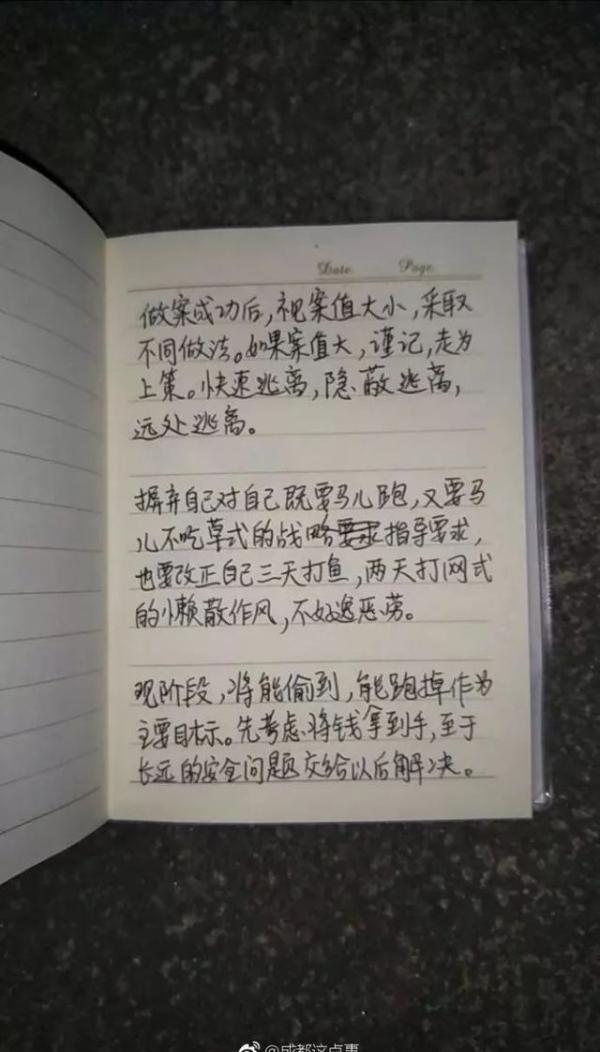 Date Page
做案成功后，视案值大小，采取
不同做法。如果案值大，谨记，走为
上策。快速逃离，隐蔽逃离，
远处逃离。
摒弃自己对自己既要马儿跑，又要马
儿不吃草式的战略指导要求，
也要改正自己三天打鱼，两天打网式
的懒散作风，不好逸恶劳。
现阶段，将能偷到，能跑掉作为
主要目标。先考虑将钱拿到手，至于
长远的安全问题交给以后解决。
@成都这点事